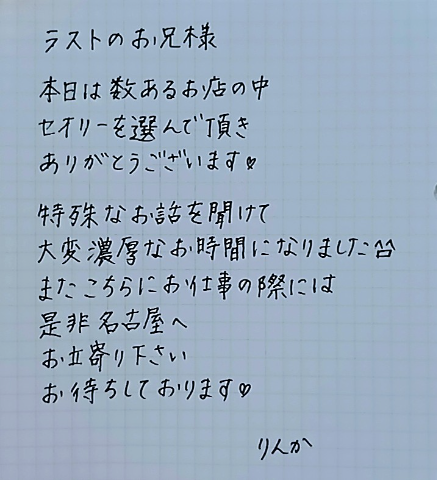 ラストのお兄様
本日は数あるお店の中
セオリーを選んで頂き
ありがとうございます♡
特殊なお話を聞けて
大変濃厚なお時間になりました^^
またこちらにお仕事の際には
是非名古屋へ
お立寄り下さい
お待ちしております♡
りんか